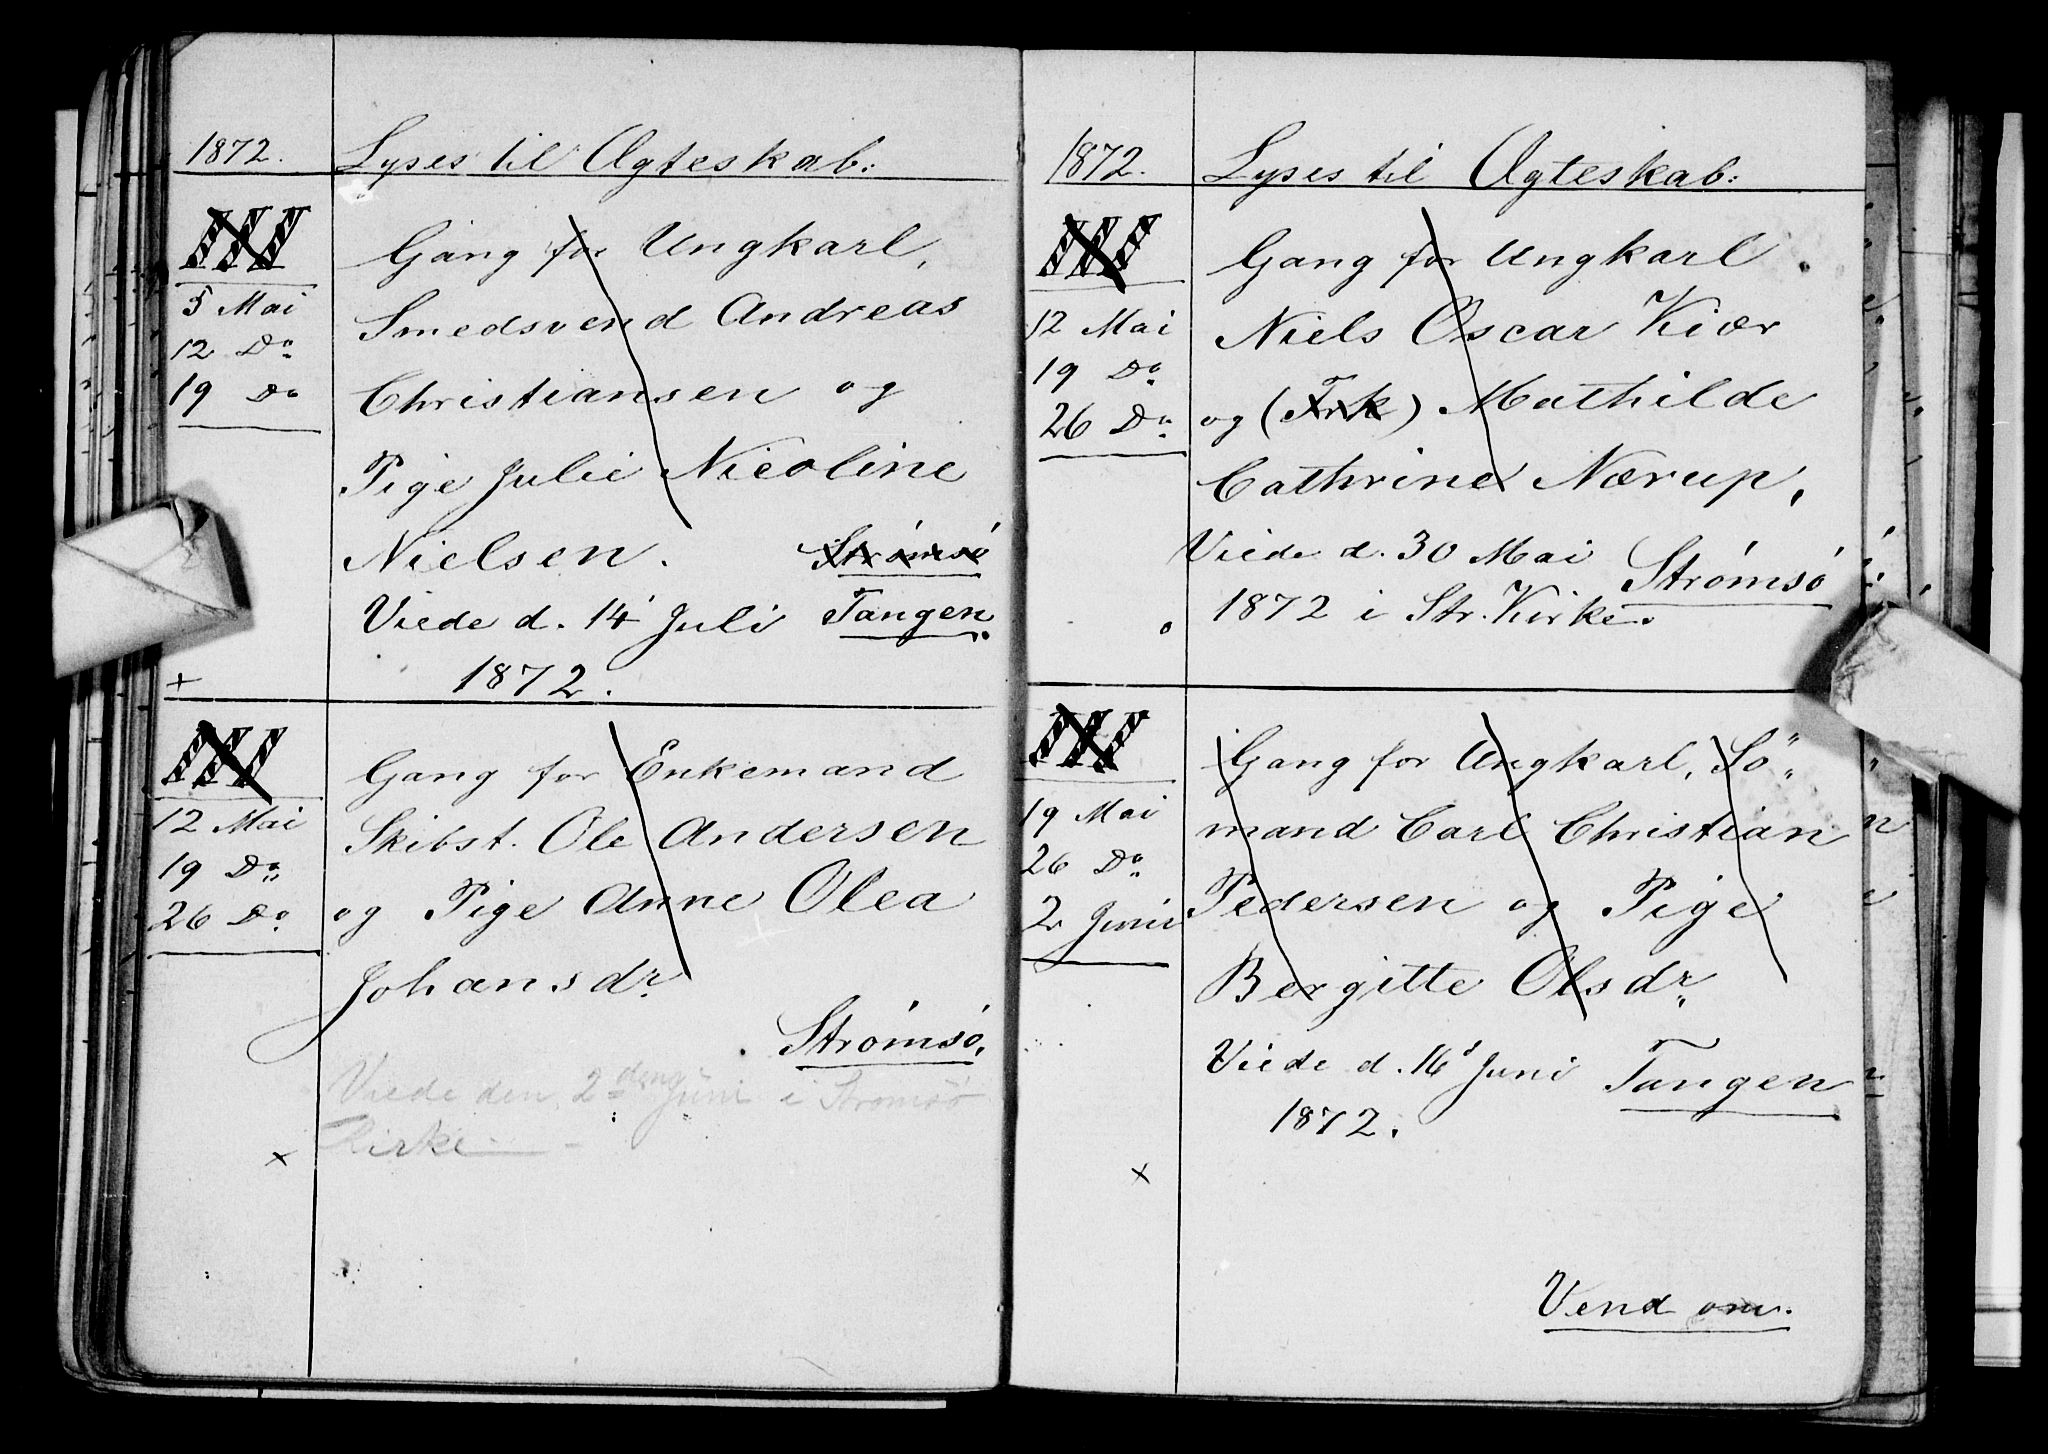 1872. Lyses til Ægteskab:
III
5 Mai
12 Do
19 Do
Gang for Ungkarl,
Smedsvend Andreas
Christiansen og
Pige Julie Nicoline
Nielsen. Strømsö
Viede d. 14 Juli Tangen.
1872.
+
III
12 Mai
19 Do
26 Do
Gang for Enkemand
Skibst. Ole Andersen
og Pige Anne Olea
Johansdr.
Strömsö.
Viede den 2den Juni i Strömsö
Kirke
x
1872. Lyses til Ægteskab:
III
12 Mai
19 Do
26 Do
Gang for Ungkarl
Niels Oscar Kiær
og (Frk) Mathilde
Cathrine Nærup,
Viede d. 30 Mai Strömsö
1872 i Str. Kirke.
III
19 Mai
26 Do
2 Juni
Gang for Ungkarl, Sö„
mand Carl Christian
Pedersen og Pige
Bergitte Olsdr.
Viede d. 16 Juni Tangen
1872.
x
Vend om.